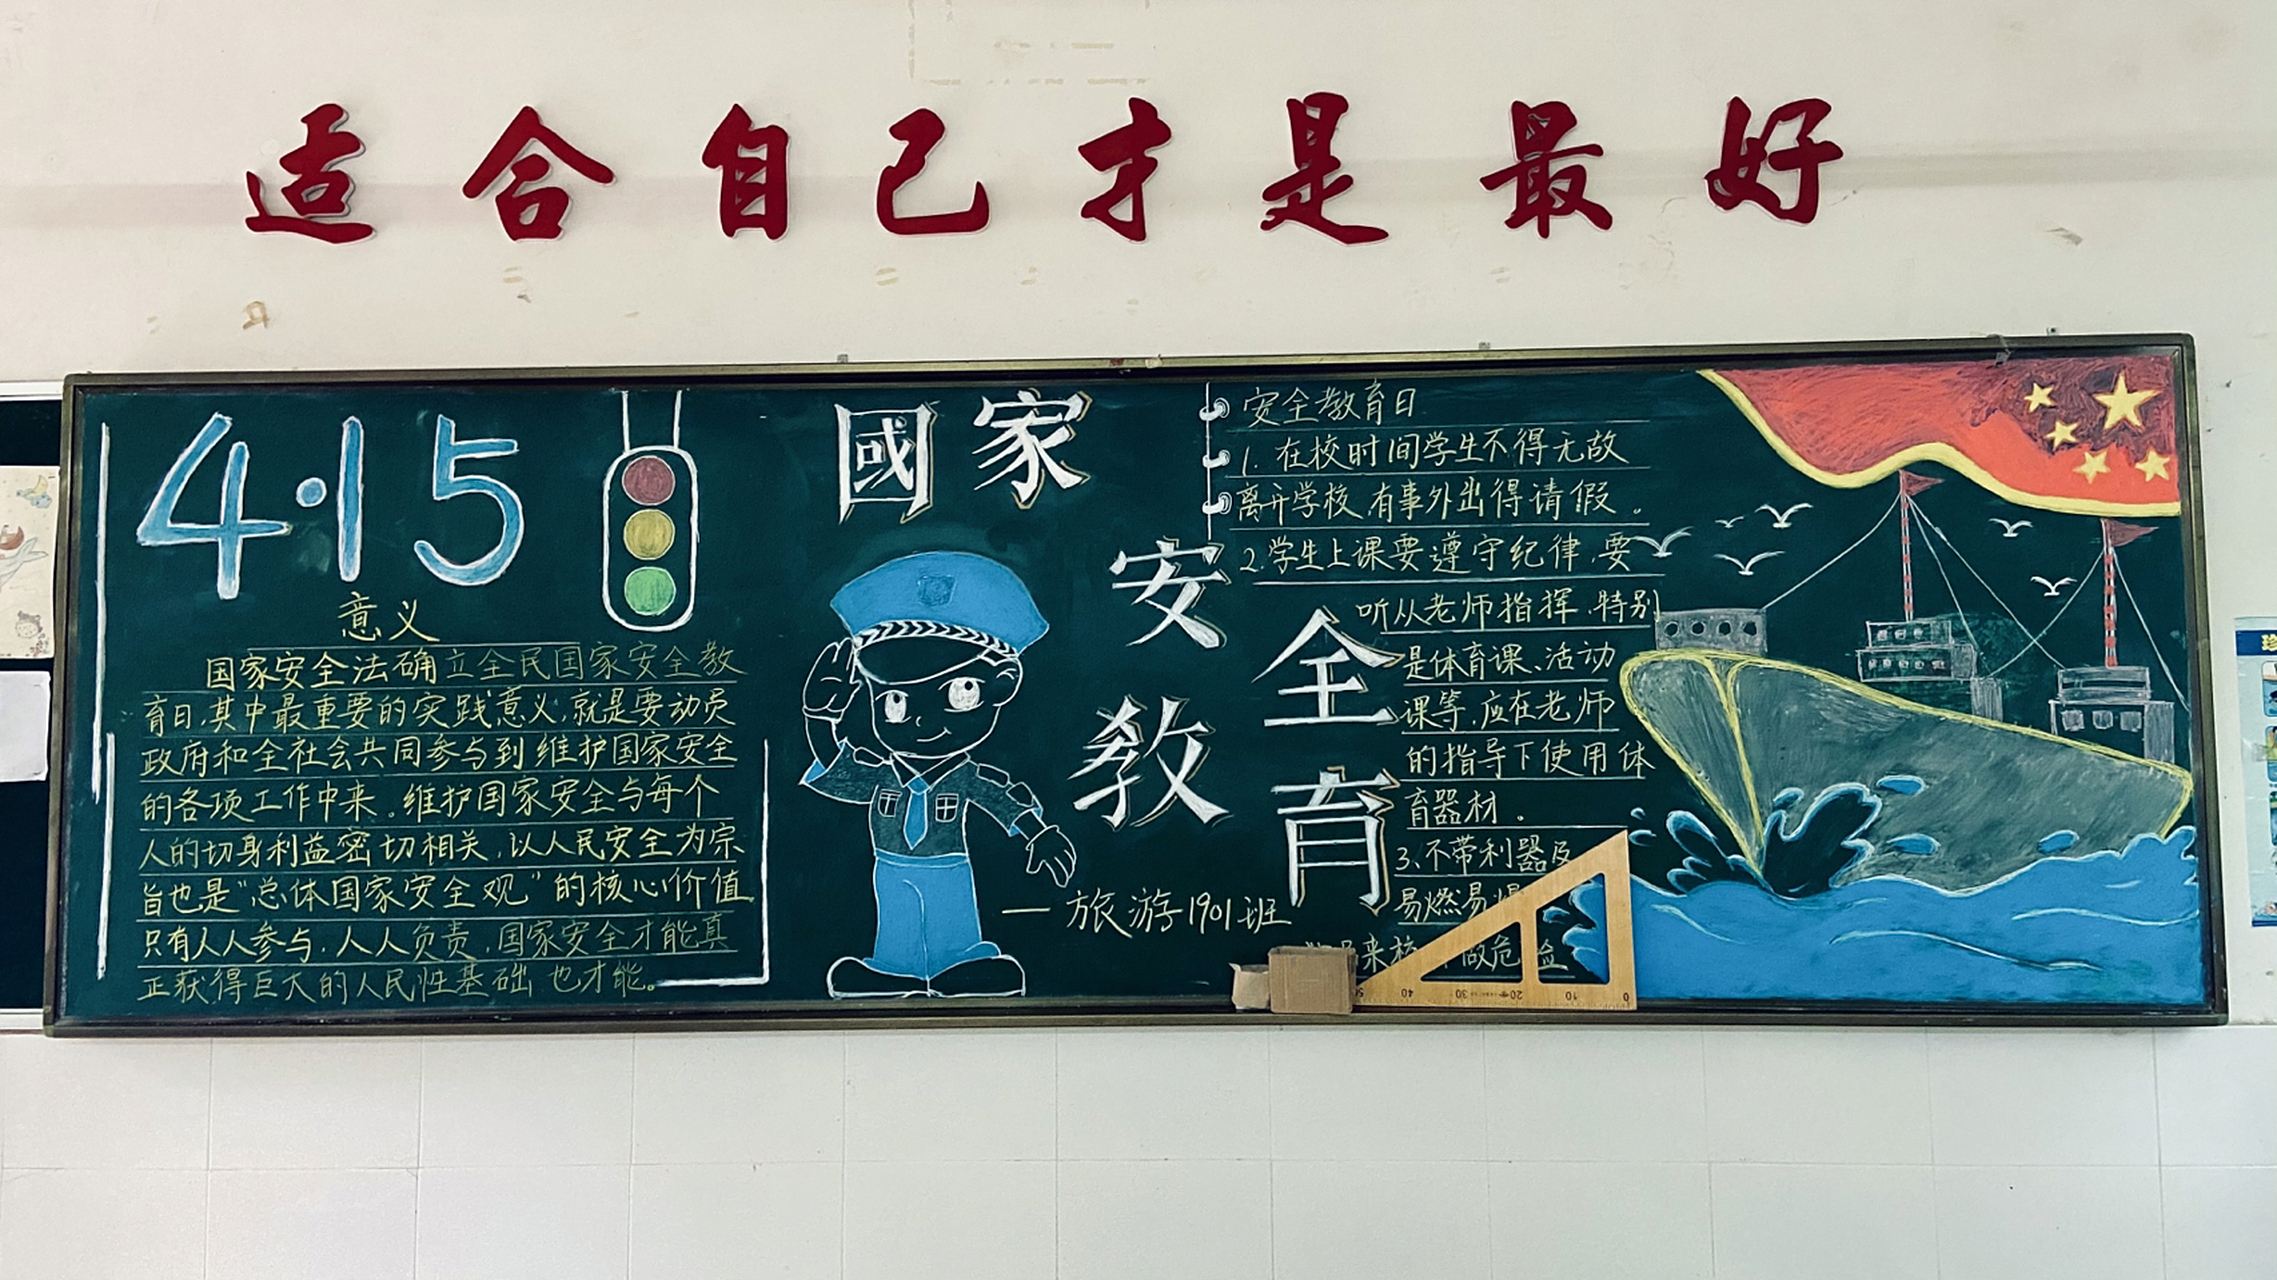 适合自己才是最好
4·15
意义
国家安全法确立全民国家安全教
育日,其中最重要的实践意义,就是要动员
政府和全社会共同参与到维护国家安全
的各项工作中来。维护国家安全与每个
人的切身利益密切相关,以人民安全为宗
旨也是“总体国家安全观”的核心价值
只有人人参与,人人负责,国家安全才能真
正获得巨大的人民性基础也才能。
國家
安全
教育
—旅游1901班
安全教育日
1. 在校时间学生不得无故
离开学校,有事外出得请假。
2.学生上课要遵守纪律,要
听从老师指挥,特别
是体育课、活动
课等,应在老师
的指导下使用体
育器材。
3、不带利器及
易燃易
来校 做危险
50 40 30 20 10 0